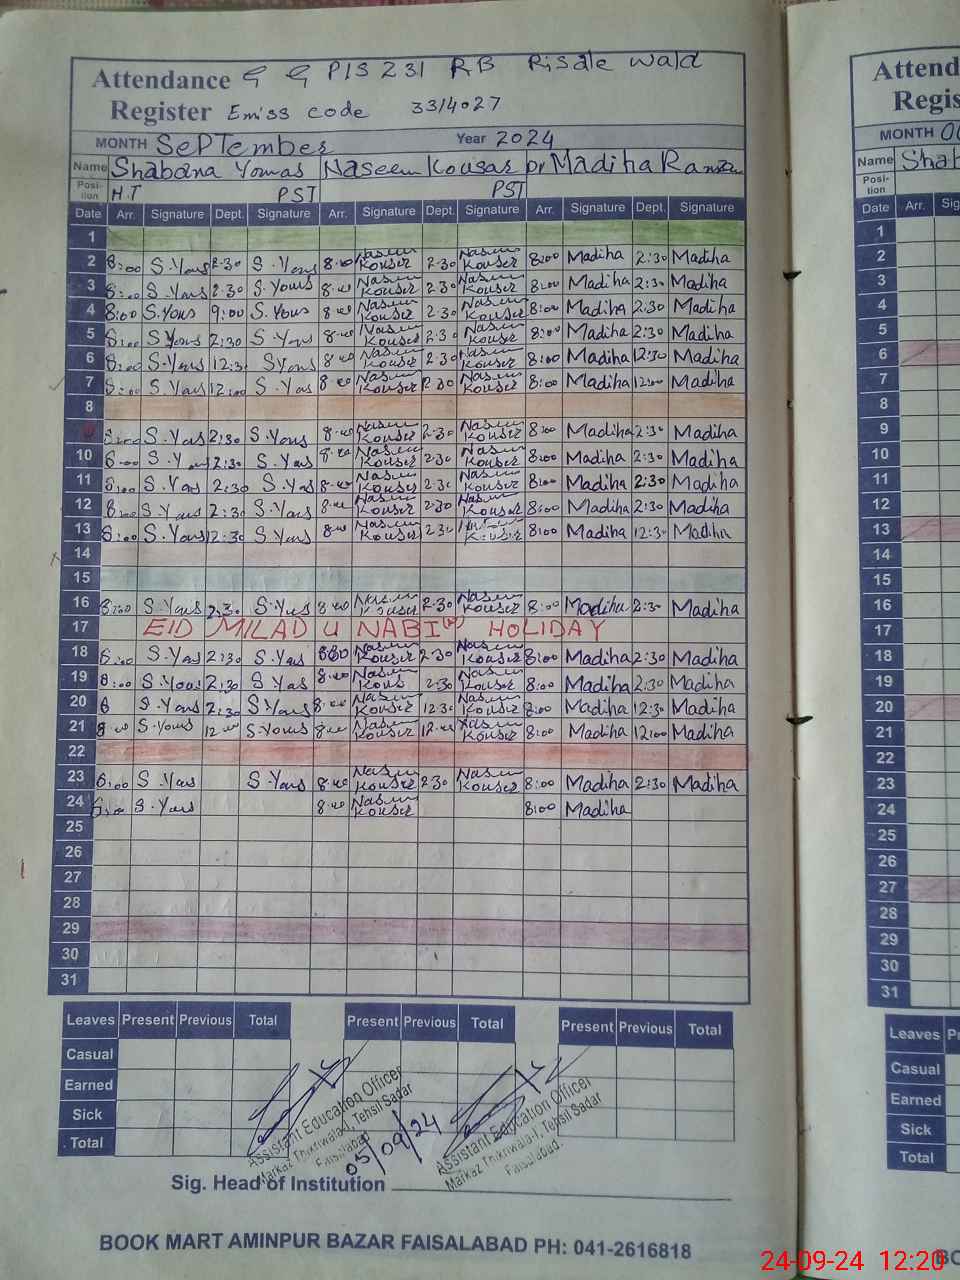 Attendance G G P/S 231 RB Risale wala
Register Emiss code 33/4027
MONTH SePTember Year 2024
Name Shabana Younas Naseem Kousar Madiha
Position H.T PST PST
Date Arr. Signature Dept. Signature Arr. Signature Dept. Signature Arr. Signature Dept. Signature
1
2 8:00 S.Yous 2:30 S.Yous 8:00 Naseem Kouser 2:30 Naseem Kouser 8:00 Madiha 2:30 Madiha
3 8:00 S.Yous 2:30 S.Yous 8:00 Naseem Kouser 2:30 Naseem Kouser 8:00 Madiha 2:30 Madiha
4 8:00 S.Yous 9:00 S.Yous 8:00 Naseem Kouser 2:30 Naseem Kouser 8:00 Madiha 2:30 Madiha
5 8:00 S.Yous 2:30 S.Yous 8:00 Naseem Kouser 2:30 Naseem Kouser 8:00 Madiha 2:30 Madiha
6 8:00 S.Yous 12:30 S.Yous 8:00 Naseem Kouser 2:30 Naseem Kouser 8:00 Madiha 12:30 Madiha
7 8:00 S.Yous 12:00 S.Yous 8:00 Naseem Kouser Naseem Kouser 8:00 Madiha 12:00 Madiha
8
8:00 S.Yous 2:30 S.Yous 8:00 Naseem Kouser 2:30 Naseem Kouser 8:00 Madiha 2:30 Madiha
10 8:00 S.Yous 2:30 S.Yous 8:00 Naseem Kouser 2:30 Naseem Kouser 8:00 Madiha 2:30 Madiha
11 8:00 S.Yous 2:30 S.Yous 8:00 Naseem Kouser 2:30 Naseem Kouser 8:00 Madiha 2:30 Madiha
12 8:00 S.Yous 2:30 S.Yous 8:00 Naseem Kouser 2:30 Naseem Kouser 8:00 Madiha 2:30 Madiha
13 8:00 S.Yous 12:30 S.Yous 8:00 Naseem Kouser 2:30 Kouser 8:00 Madiha 12:30 Madiha
14
15
16 8:00 S.Yous 2:30 S.Yous 8:00 Naseem Kouser 2:30 Naseem Kouser 8:00 Madiha 2:30 Madiha
17 EID MILAD U NABI HOLIDAY
18 8:00 S.Yous 2:30 S.Yous 8:00 Naseem Kouser 2:30 Naseem Kouser 8:00 Madiha 2:30 Madiha
19 8:00 S.Yous 2:30 S.Yous 8:00 Naseem 2:30 Naseem Kouser 8:00 Madiha 2:30 Madiha
20 8 S.Yous 2:30 S.Yous 8:00 Naseem Kouser 12:30 Naseem Kouser 8:00 Madiha 12:30 Madiha
21 8:00 S.Yous 12:00 S.Yous 8:00 Naseem Kouser 12:00 Naseem Kouser 8:00 Madiha 12:00 Madiha
22
23 8:00 S.Yous S.Yous 8:00 Naseem Kouser 2:30 Naseem Kouser 8:00 Madiha 2:30 Madiha
24 8:00 S.Yous 8:00 Naseem Kouser 8:00 Madiha
25
26
27
28
29
30
31
Leaves Present Previous Total Present Previous Total Present Previous Total
Casual
Earned
Sick
Total
Assistant Education Officer
Markaz Thikriwala-I, Tehsil Sadar
Faisalabad
05/09/24
Assistant Education Officer
Markaz Thikriwala-I, Tehsil Sadar
Faisalabad.
Sig. Head of Institution
BOOK MART AMINPUR BAZAR FAISALABAD PH: 041-2616818
Attend
Regis
MONTH
Name Shab
Position
Date Arr. Sig
1
2
3
4
5
6
7
8
9
10
11
12
13
14
15
16
17
18
19
20
21
22
23
24
25
26
27
28
29
30
31
Leaves Present
Casual
Earned
Sick
Total
BO
24-09-24 12:20